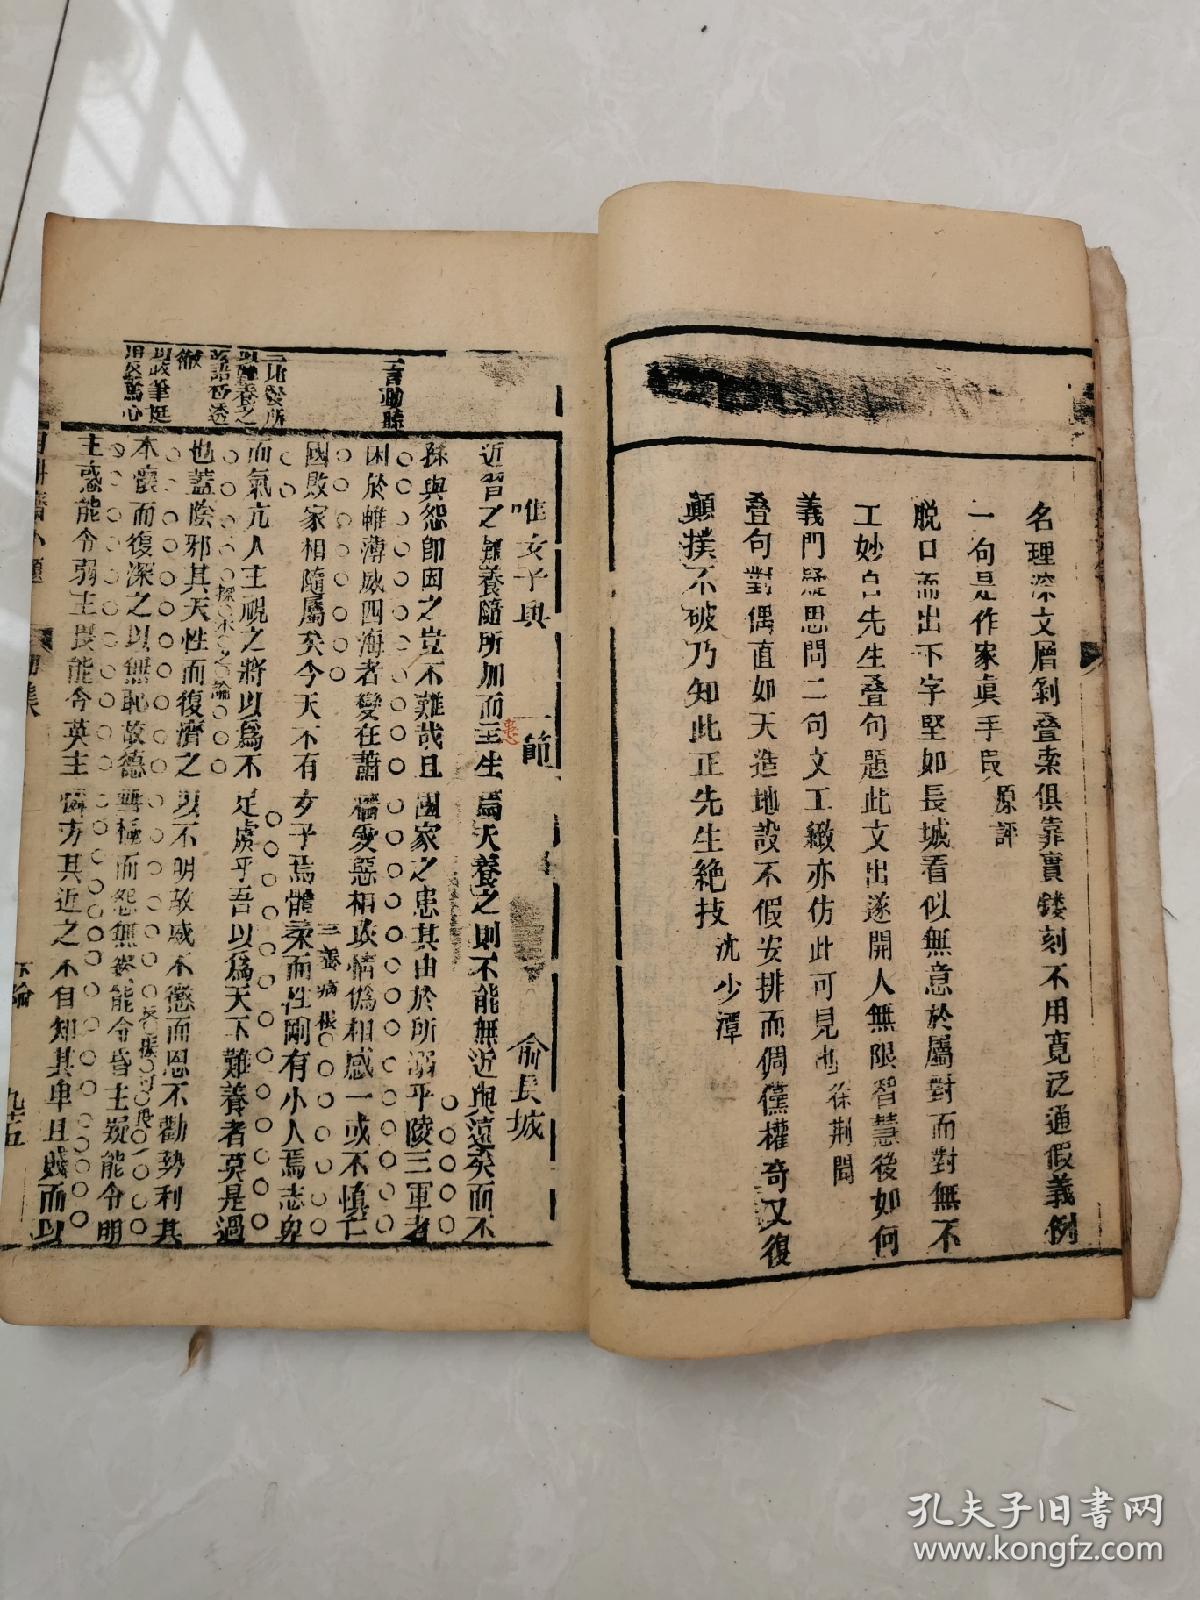 名理深文層剝疊案俱靠實鏤刻不用寬泛通假義例
一句是作家眞手段 原評
脫口而出下字堅如長城看似無意於屬對而對無不
工妙自先生疊句題此文出遂開人無限智慧後如何
義門疑思問二句文工緻亦仿此可見也 徐荆聞
疊句對偶直如天造地設不假安排而倜儻權奇又復
顚撲不破乃知此正先生絶技 沈少潭
唯女子與 一節 俞長城
近習之難養隨所加而至生焉夫養之則不能無近與遠矣而不
孫與怨卽因之豈不難哉且國家之患其由於所溺乎陵三軍者
困於帷薄威四海者變在蕭牆愛惡相攻情僞相感一或不愼亡
國敗家相隨屬矣今天不有女子焉體柔而性剛有小人焉志卑
而氣亢人主視之將以爲不足慮乎吾以爲天下難養者莫是過
也蓋陰邪其天性而復濟之以不明故威不懲而恩不勸勢利其
本懷而復深之以無恥故德 極而怨無 能令昏主疑能令明
主惑能令弱主畏能令英主憐方其近之不自知其卑且賤而以
三養病根
下論
九十五
孔夫子旧书网
www.kongfz.com